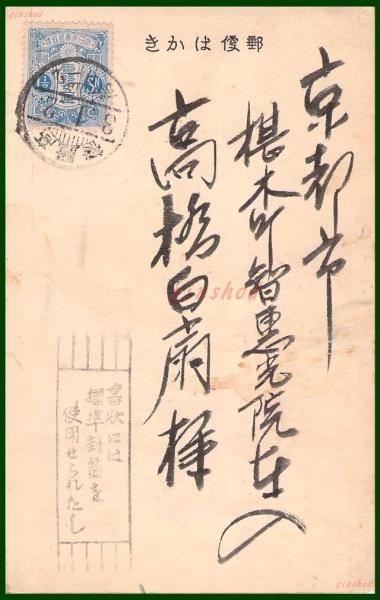 きかは便郵
京都市
椹木町智恵光院東入
高橋白扇様
書状には
標準封筒を
使用せられたし
ginshod
ginshod
ginshod